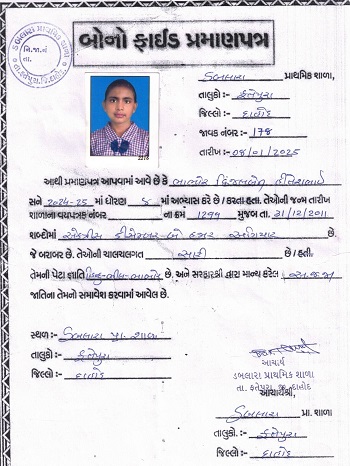 બોનો ફાઈડ પ્રમાણપત્ર
ડબલારા પ્રાથમિક શાળા
ડબલારા પ્રાથમિક શાળા,
તાલુકો :- ફતેપુરા
જિલ્લો :- દાહોદ
જાવક નંબર :- 178
તારીખ :- 08/01/2025
આથી પ્રમાણપત્ર આપવામાં આવે છે કે ભાભોર
સને 2024-25 માં ધોરણ માં અભ્યાસ કરે છે / કરતા હતા. તેઓની જન્મ તારીખ
શાળાના વયપત્રક નંબર ના ક્રમ 1299 મુજબ તા. 31/12/2011
શબ્દોમાં એકત્રીસ ડીસેમ્બર બે હજાર અગિયાર છે.
જે બરાબર છે. તેઓની ચાલચલગત સારી છે / હતી.
તેમની પેટા જ્ઞાતિ હિન્દુ-ભીલ-ભાભોર છે. અને સરકારશ્રી દ્વારા માન્ય કરેલ અ.જ.જા
જાતિના તેમનો સમાવેશ કરવામાં આવેલ છે.
સ્થળ :- ડબલારા પ્રા. શાળા
તાલુકો :- ફતેપુરા
જિલ્લો :- દાહોદ
આચાર્ય
ડબલારા પ્રાથમિક શાળા
તા. ફતેપુરા, જી. દાહોદ
આચાર્યશ્રી,
ડબલારા પ્રા. શાળા
તાલુકો. :- ફતેપુરા
જિલ્લો :- દાહોદ